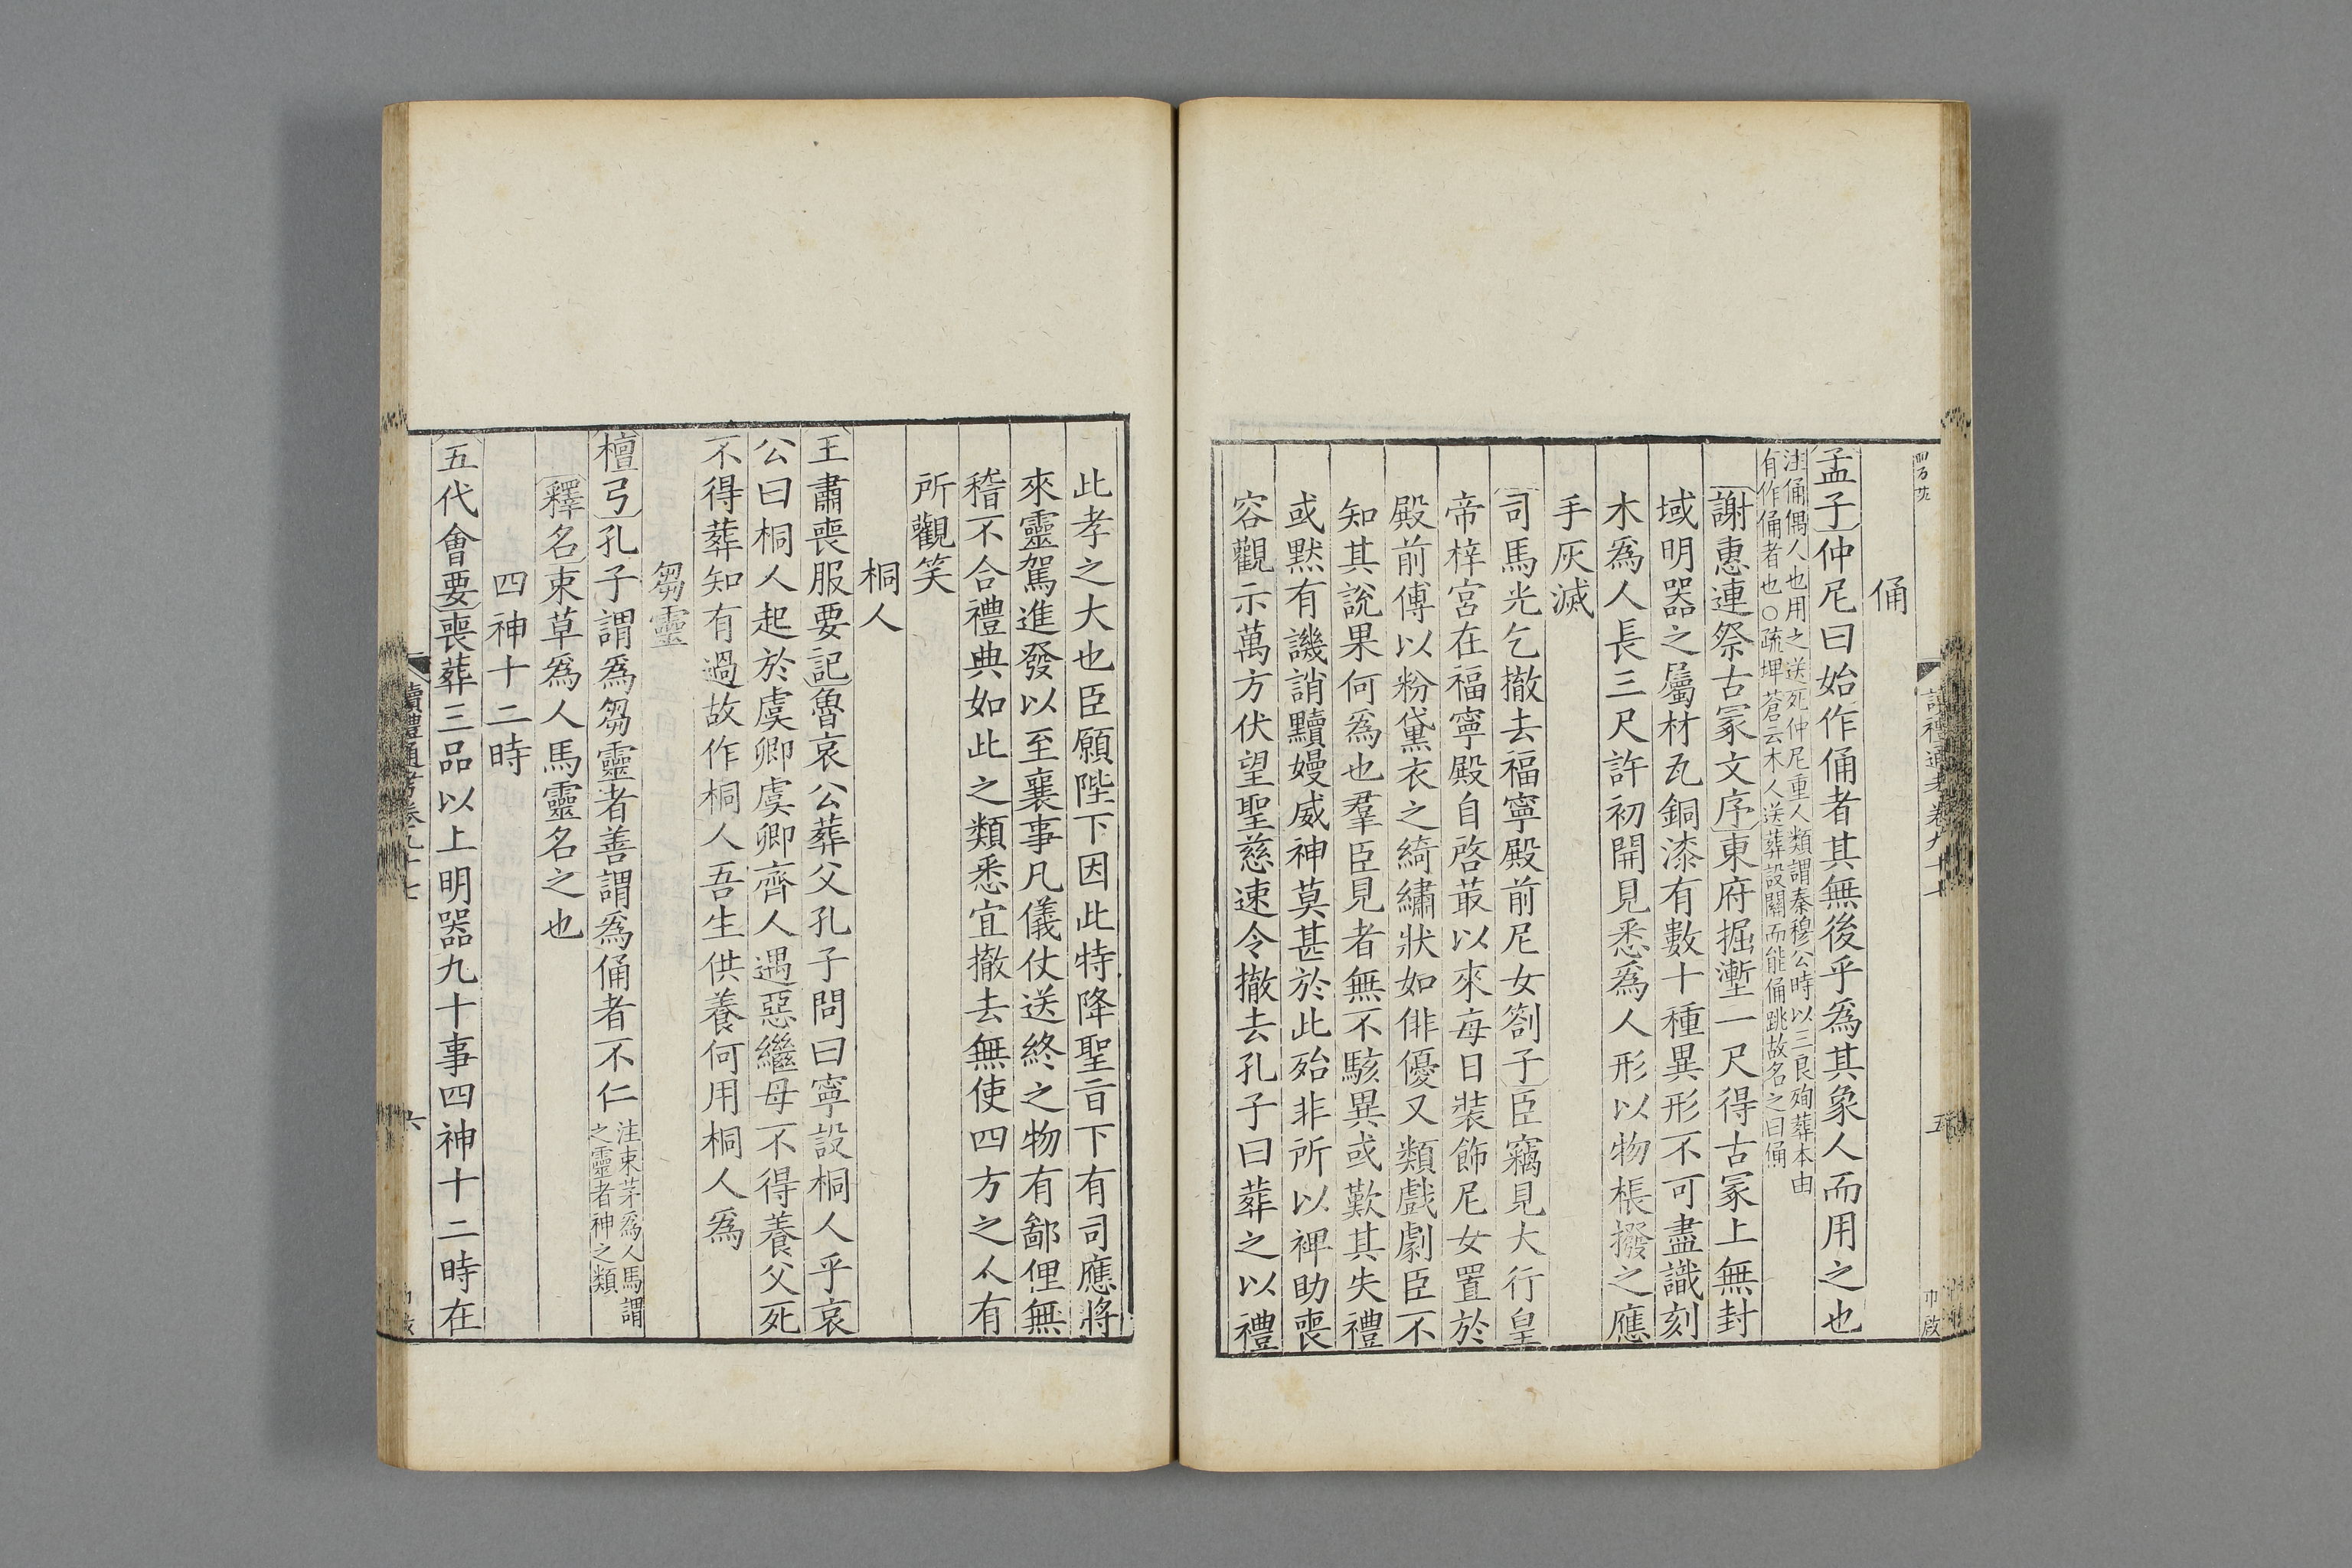 俑
孟子仲尼曰始作俑者其無後乎爲其象人而用之也
注俑偶人也用之送死仲尼重人類謂秦穆公時以三良殉葬本由
有作俑者也○疏埤蒼云木人送葬設關而能俑跳故名之曰俑
謝惠連祭古冢文序東府掘塹一尺得古冢上無封
域明器之屬材瓦銅漆有數十種異形不可盡識刻
木爲人長三尺許初開見悉爲人形以物棖撥之應
手灰滅
司馬光乞撤去福寧殿前尼女劄子臣竊見大行皇
帝梓宮在福寧殿自啓菆以來每日裝飾尼女置於
殿前傅以粉黛衣之綺繡狀如俳優又類戲劇臣不
知其說果何爲也羣臣見者無不駭異或歎其失禮
或默有譏誚黷嫚威神莫甚於此殆非所以裨助喪
容觀示萬方伏望聖慈速令撤去孔子曰葬之以禮
此孝之大也臣願陛下因此特降聖旨下有司應將
來靈駕進發以至襄事凡儀仗送終之物有鄙俚無
稽不合禮典如此之類悉宜撤去無使四方之人有
所觀笑
桐人
王肅喪服要記魯哀公葬父孔子問曰寧設桐人乎哀
公曰桐人起於虞卿虞卿齊人遇惡繼母不得養父死
不得葬知有過故作桐人吾生供養何用桐人爲
芻靈
檀弓孔子謂爲芻靈者善謂爲俑者不仁
注束茅爲人馬謂
之靈者神之類
釋名束草爲人馬靈名之也
四神十二時
五代會要喪葬三品以上明器九十事四神十二時在
讀禮通考卷九十七
六